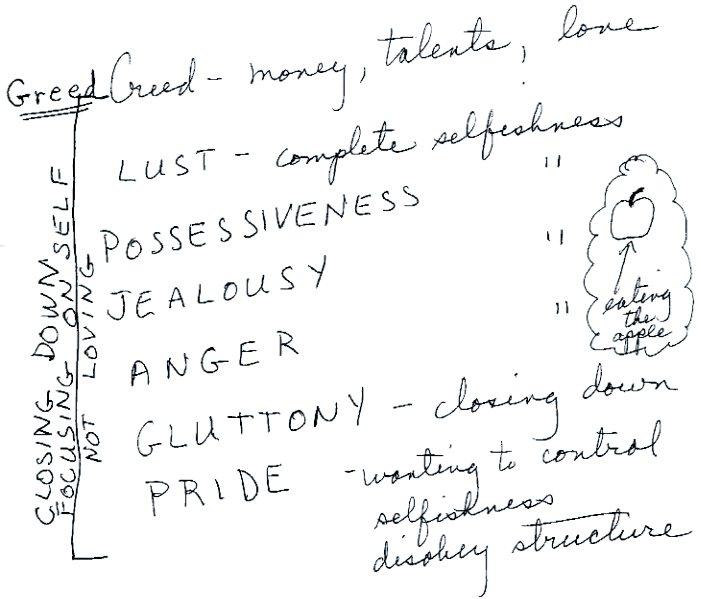 Greed Greed - money, talents, love
LUST - complete selfishness
POSSESSIVENESS "
JEALOUSY "
ANGER "
GLUTTONY - closing down
PRIDE - wanting to control
selfishness
disobey structure
CLOSING DOWN
FOCUSING ON SELF
NOT LOVING
eating
the
apple